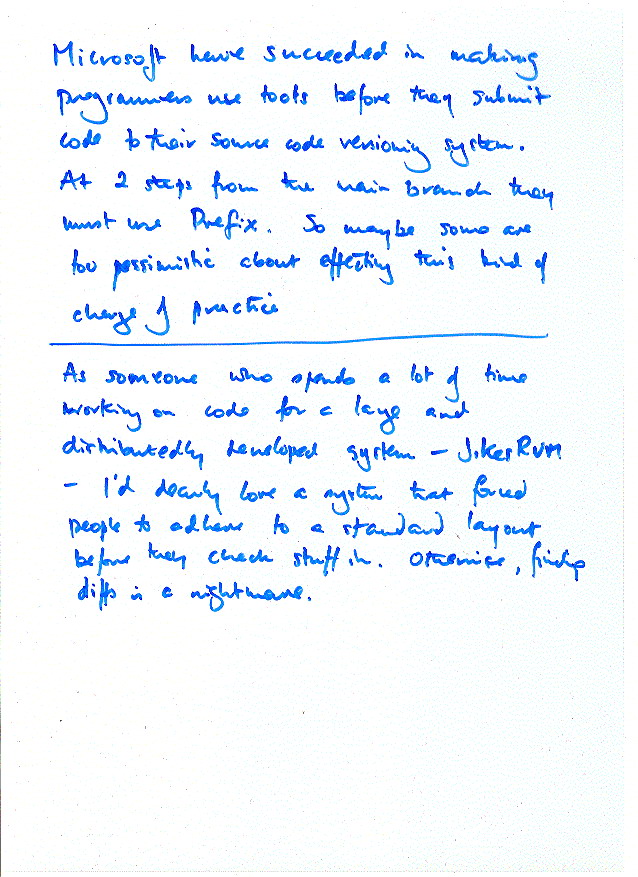 Microsoft have succeeded in making
programmers use tools before they submit
code to their source code versioning system.
At 2 steps from the main branch they
must use Prefix. So maybe some are
too pessimistic about effecting this kind of
change of practice
As someone who spends a lot of time
working on code for a large and
distributedly developed system - JikesRVM
- I'd dearly love a system that forced
people to adhere to a standard layout
before they check stuff in. Otherwise, finding
diffs is a nightmare.